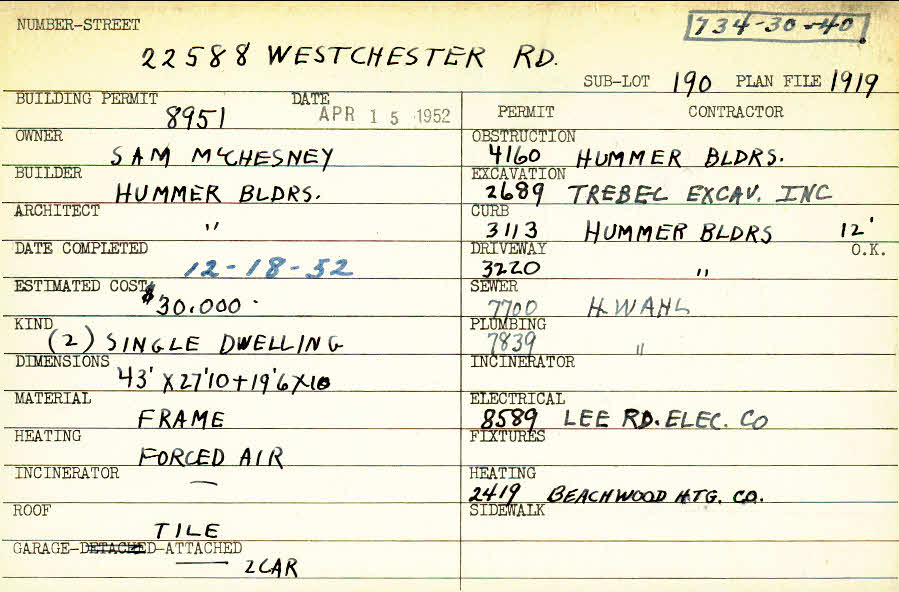 NUMBER-STREET
734-30-40
22588 WESTCHESTER RD.
SUB-LOT 190 PLAN FILE 1919
BUILDING PERMIT DATE
8951 APR 15 1952
OWNER
SAM McCHESNEY
BUILDER
HUMMER BLDRS.
ARCHITECT
"
DATE COMPLETED
12-18-52
ESTIMATED COST
$30,000.
KIND
(2) SINGLE DWELLING
DIMENSIONS
43' X 27'10 + 19'6 X 10
MATERIAL
FRAME
HEATING
FORCED AIR
INCINERATOR
—
ROOF
TILE
GARAGE-DETACHED-ATTACHED
2 CAR
PERMIT CONTRACTOR
OBSTRUCTION
4160 HUMMER BLDRS.
EXCAVATION
2689 TREBEL EXCAV. INC
CURB
3113 HUMMER BLDRS 12'
DRIVEWAY O.K.
3220 "
SEWER
7700 H. WAHL
PLUMBING
7839 "
INCINERATOR
ELECTRICAL
8589 LEE RD. ELEC. CO
FIXTURES
HEATING
2419 BEACHWOOD HTG. CO.
SIDEWALK